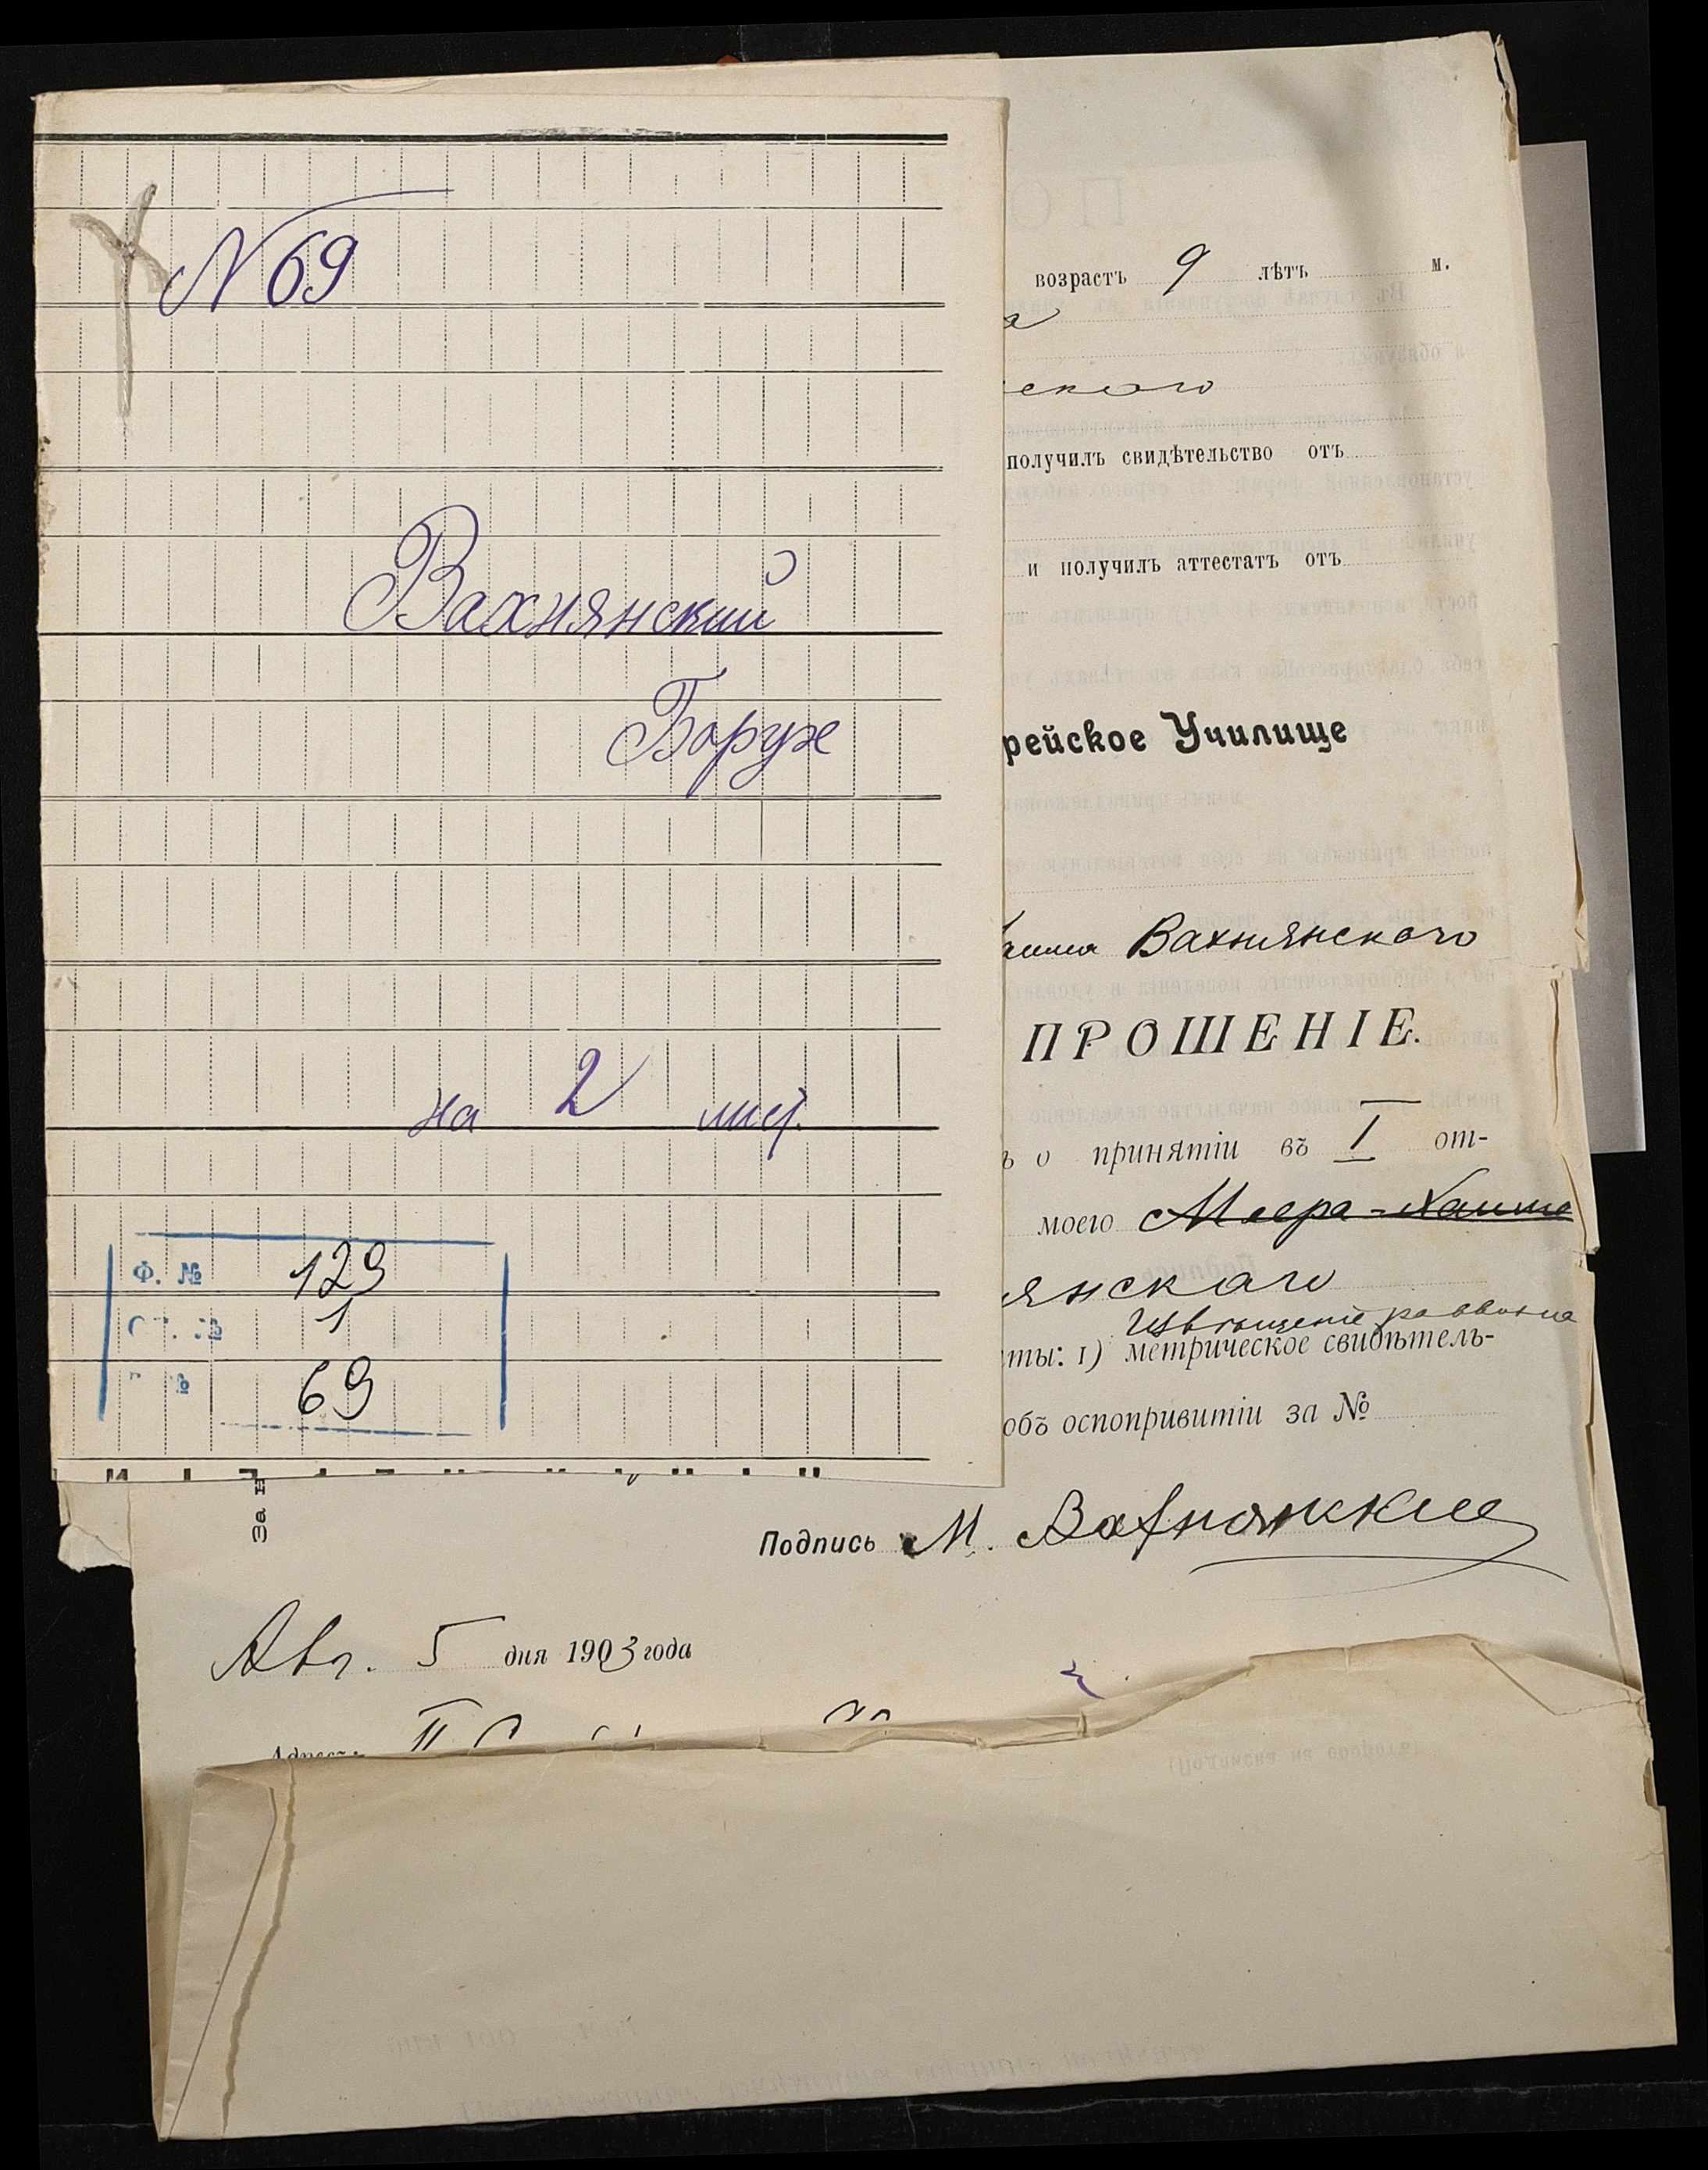 N 69
Вахнянский
Борух
на 2 лист.
Ф. № 129
1
69
возрастъ 9 лѣтъ м.
а
ского
получилъ свидѣтельство отъ
и получилъ аттестатъ отъ
рейское Училище
Вахнянского
ПРОШЕНІЕ.
ъ о принятіи въ I от-
моего Меера-Хаима
янскаго
нты: 1) метрическое свидѣтель-
объ оспопривитіи за №
За
Подпись М. Вахнянский
Авг. 5 дня 1903 года
Адресъ: